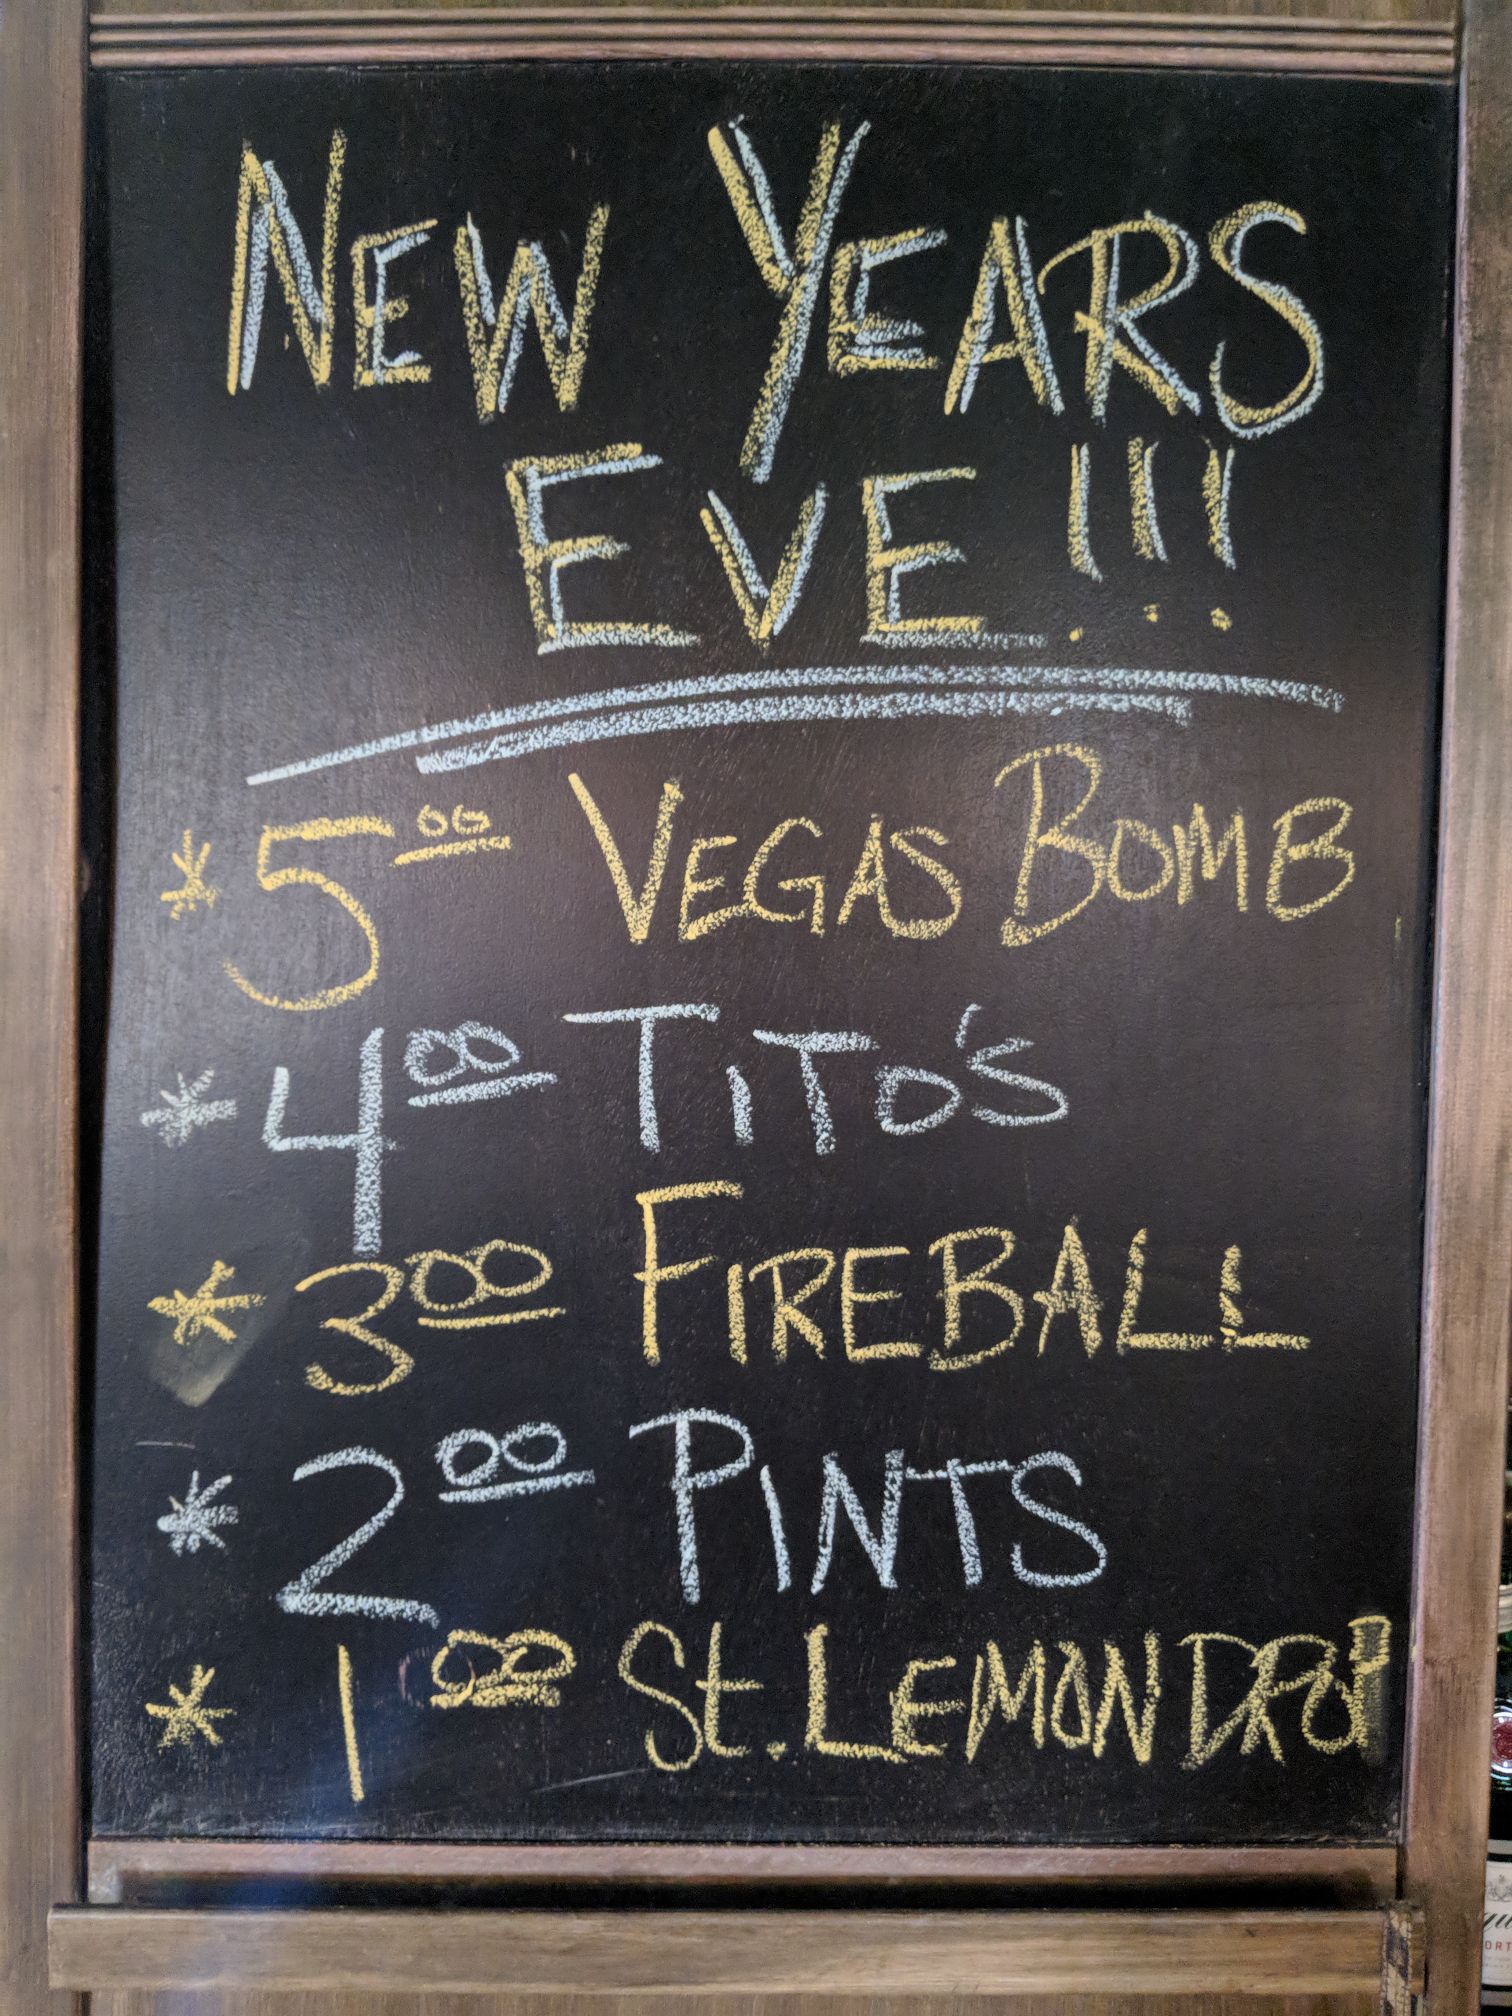 NEW YEARS
EVE!!!
* 5.00 VEGAS BOMB
* 4.00 TITO'S
* 3.00 FIREBALL
* 2.00 PINTS
* 1.00 St. LEMON DROP